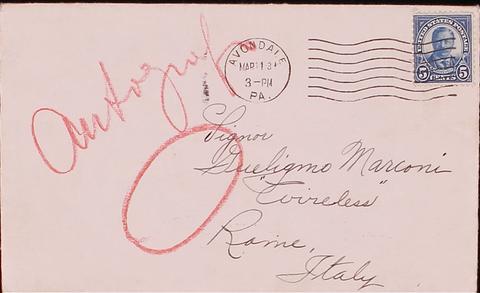 Autograf
AVONDALE
3-PM
PA.
UNITED STATES POSTAGE
5 CENTS 5
Signor
Gueligmo Marconi
"Wireless"
Rome,
Italy